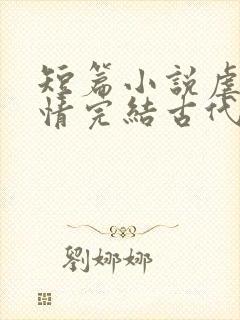 短篇小説虐
情完結古代
劉娜娜